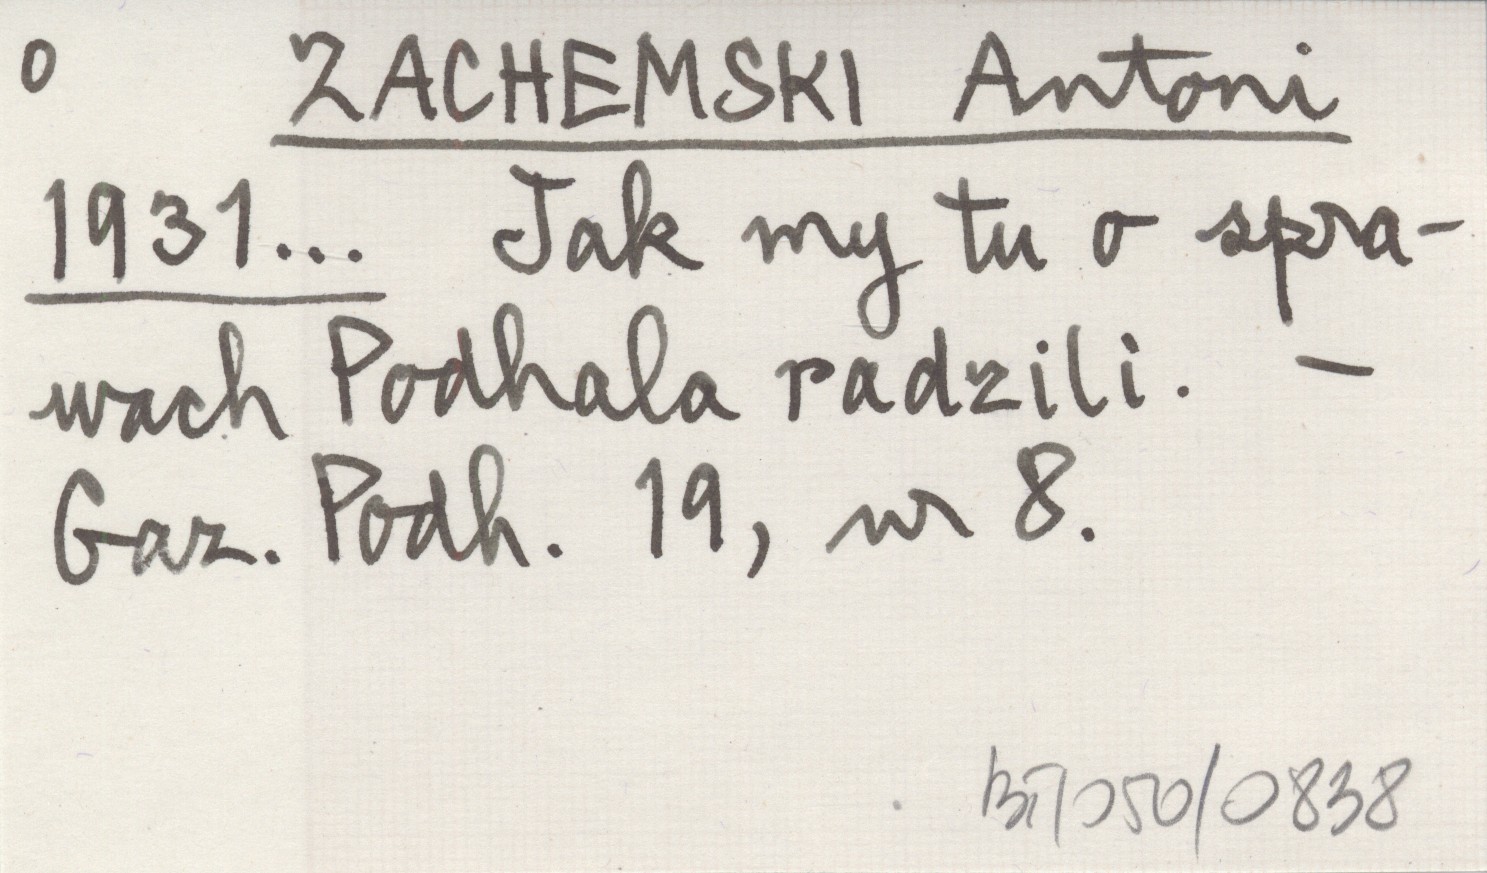 o ZACHEMSKI Antoni
1931... Jak my tu o spra-
wach Podhala radzili. –
Gaz. Podh. 19, nr 8.
BT/050/0838